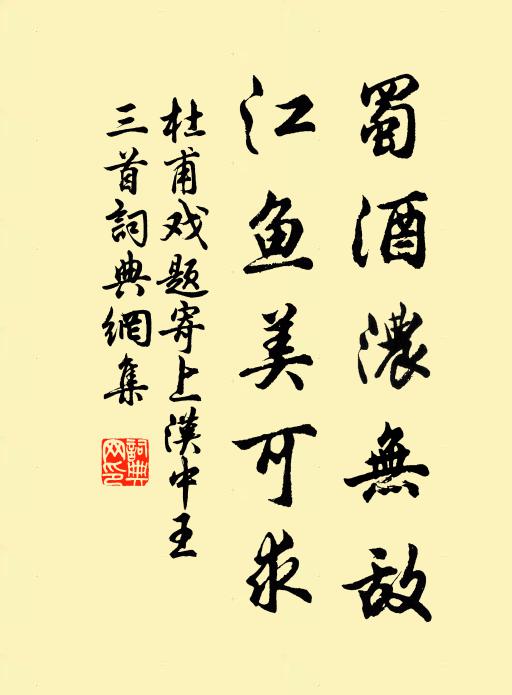 蜀酒濃無敵
江鱼美可求
杜甫戏题寄上漢中王
三首詞典網集
詞典
网印